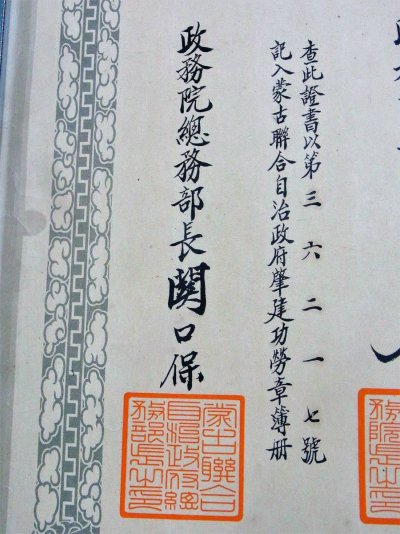 查此證書以第三六二一七號
記入蒙古聯合自治政府肇建功勞章簿册
政務院總務部長關口保
蒙古聯合
自治政府總
務部長之印